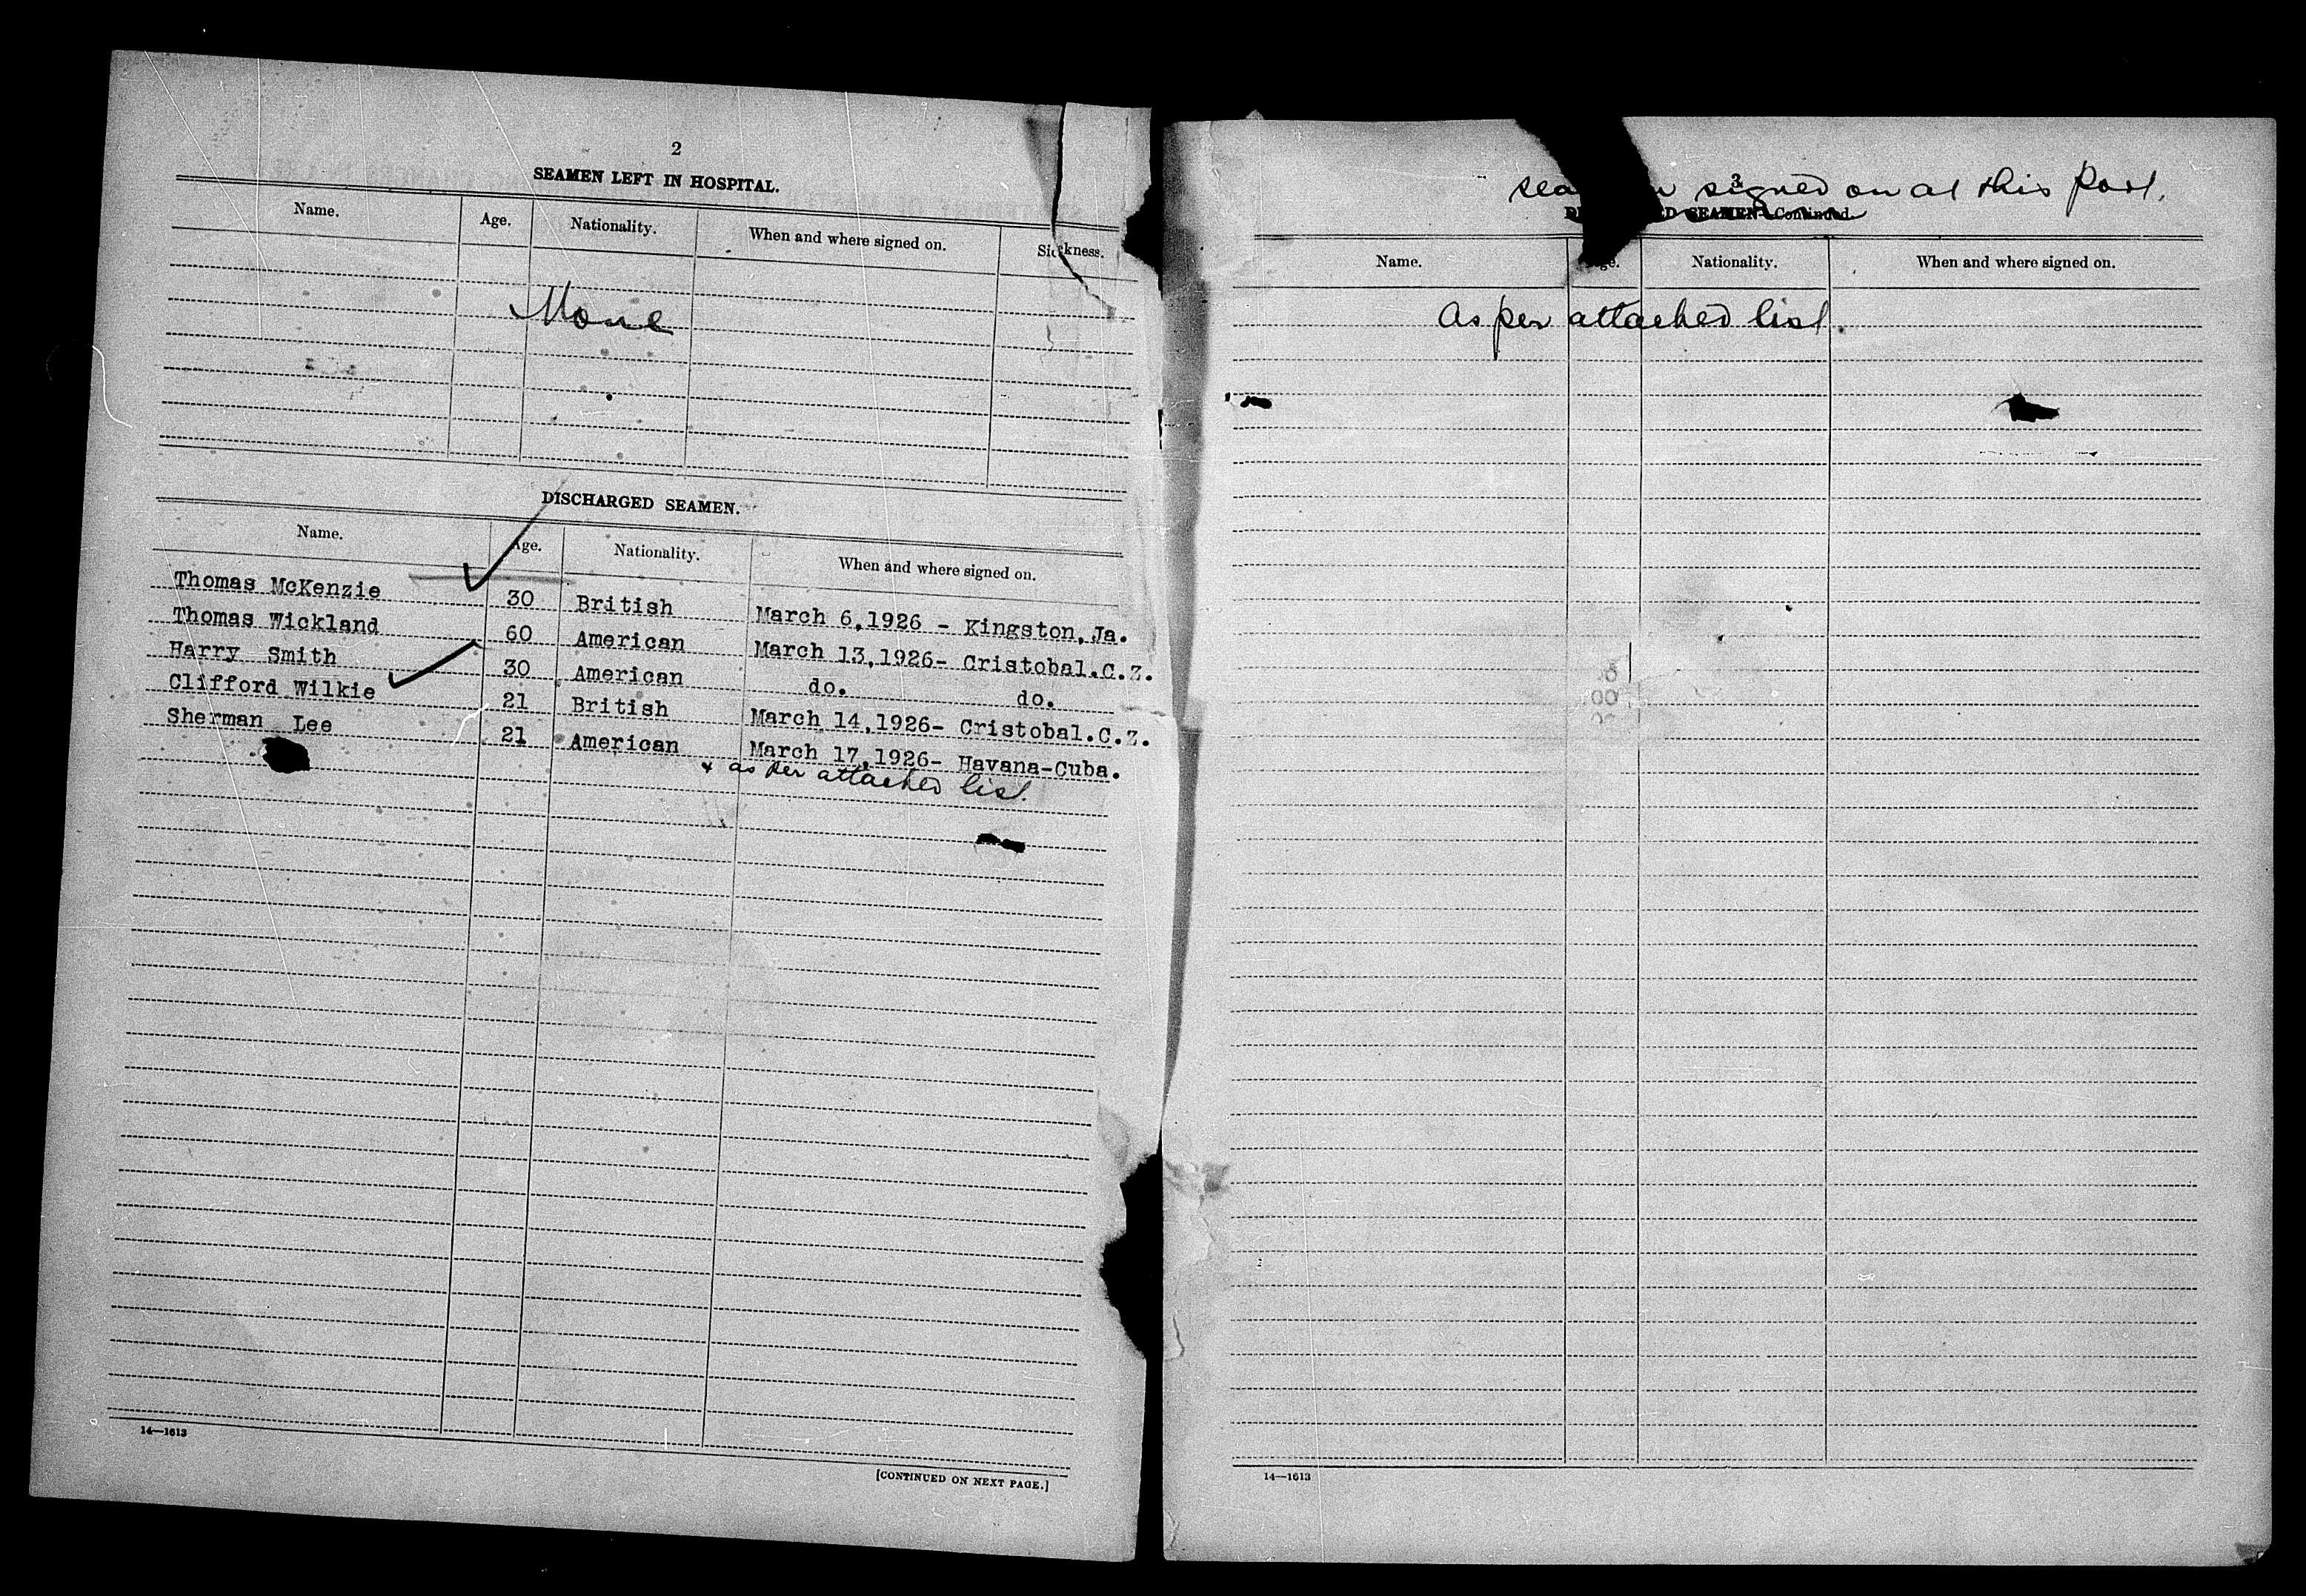 2
SEAMEN LEFT IN HOSPITAL.
Name. Age. Nationality. When and where signed on. Sickness.
None
DISCHARGED SEAMEN.
Name. Age. Nationality. When and where signed on.
Thomas McKenzie 30 British March 6,1926 - Kingston,Ja.
Thomas Wickland 60 American March 13,1926- Cristobal.C.Z.
Harry Smith 30 American do. do.
Clifford Wilkie 21 British March 14,1926- Cristobal.C.Z.
Sherman Lee 21 American March 17,1926- Havana-Cuba.
+ as per attached list.
14—1613
[CONTINUED ON NEXT PAGE.]
3
signed on at this Port.
SEAMEN—Continued.
Name. Nationality. When and where signed on.
As per attached list.
14—1613